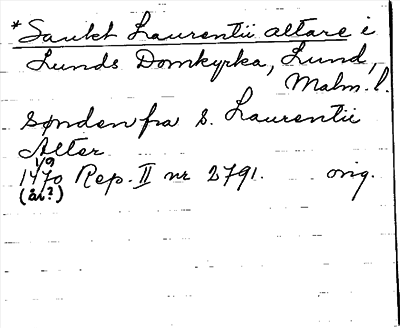 * Sankt Laurentii altare i
Lunds Domkyrka, Lund,
Malm. l.
sønden fra S. Laurentii
Alter
1/9
1470 Rep. II nr 2791. orig.
(år?)